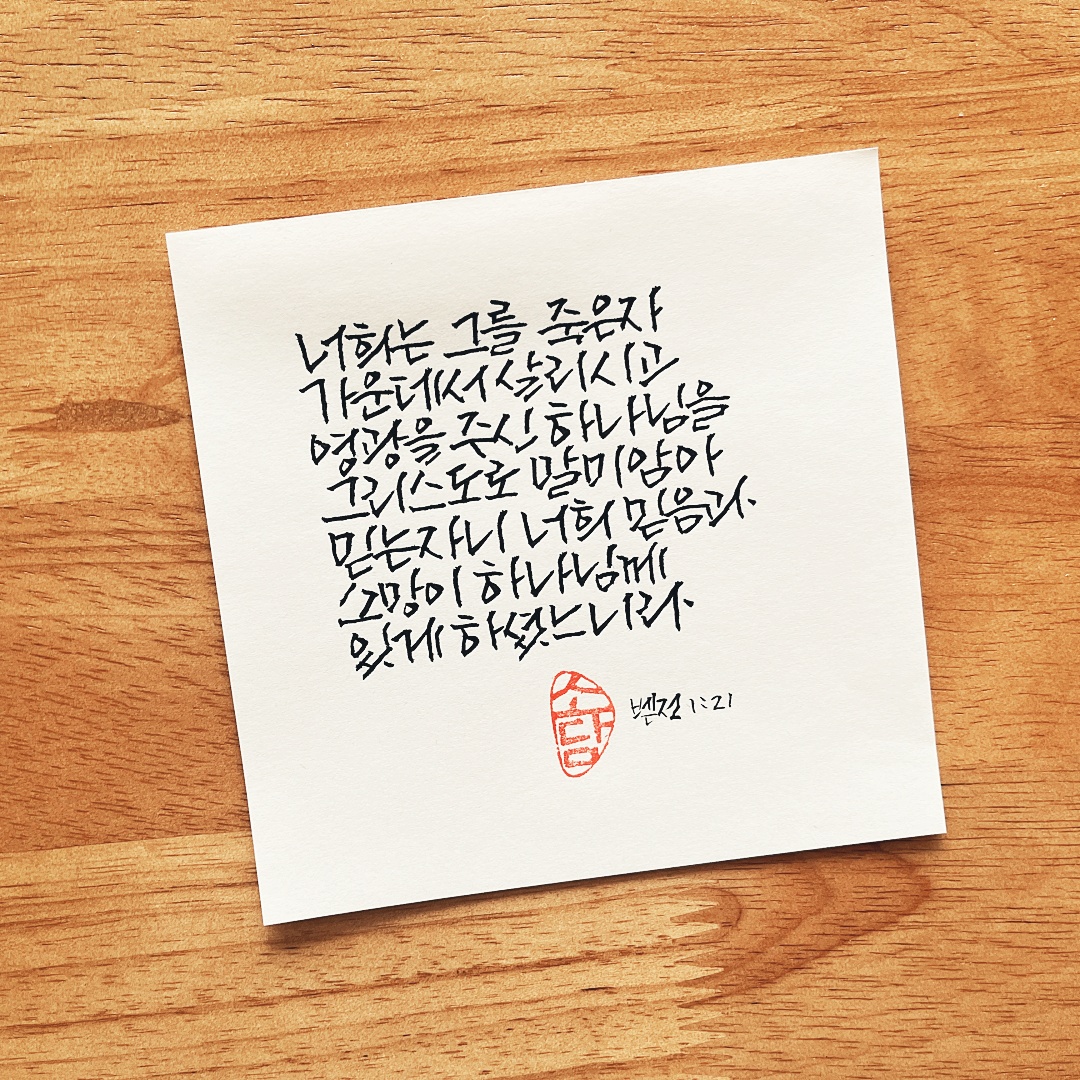 너희는 그를 죽은자
가운데서 살리시고
영광을 주신 하나님을
그리스도로 말미암아
믿는자니 너희 믿음과
소망이 하나님께
있게 하셨느니라.
소담
벧전 1:21